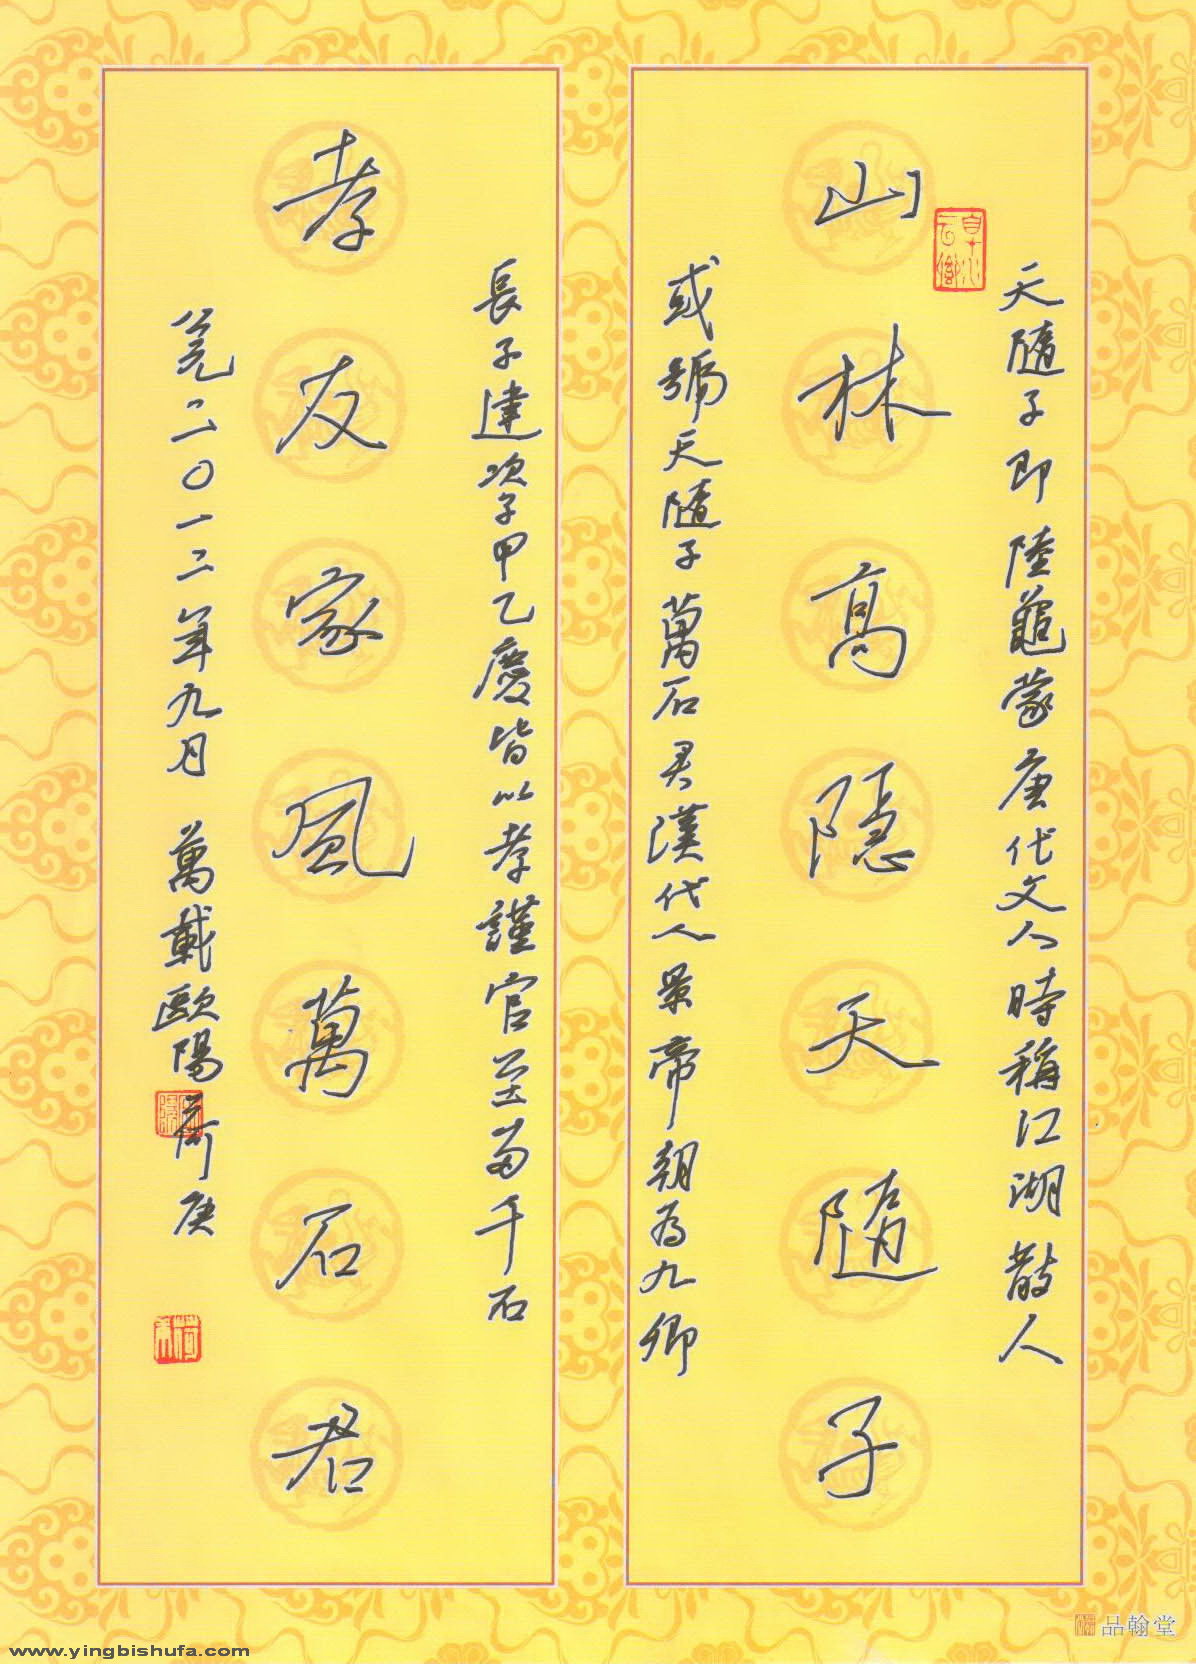 山林高隱天隨子
天隨子即陸龜蒙唐代文人時稱江湖散人
或號天隨子萬石君漢代人景帝朝為九卿
孝友家風萬石君
長子建次子甲乙慶皆以孝謹官至二千石
二〇一二年九月 萬載歐陽荷庚
品翰堂
www.yingbishufa.com